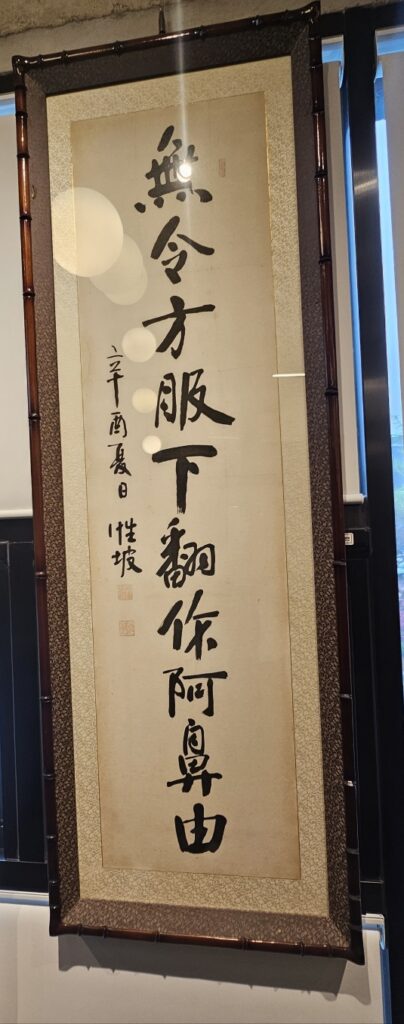 無令方服下翻作阿鼻由
辛酉夏日 性坡